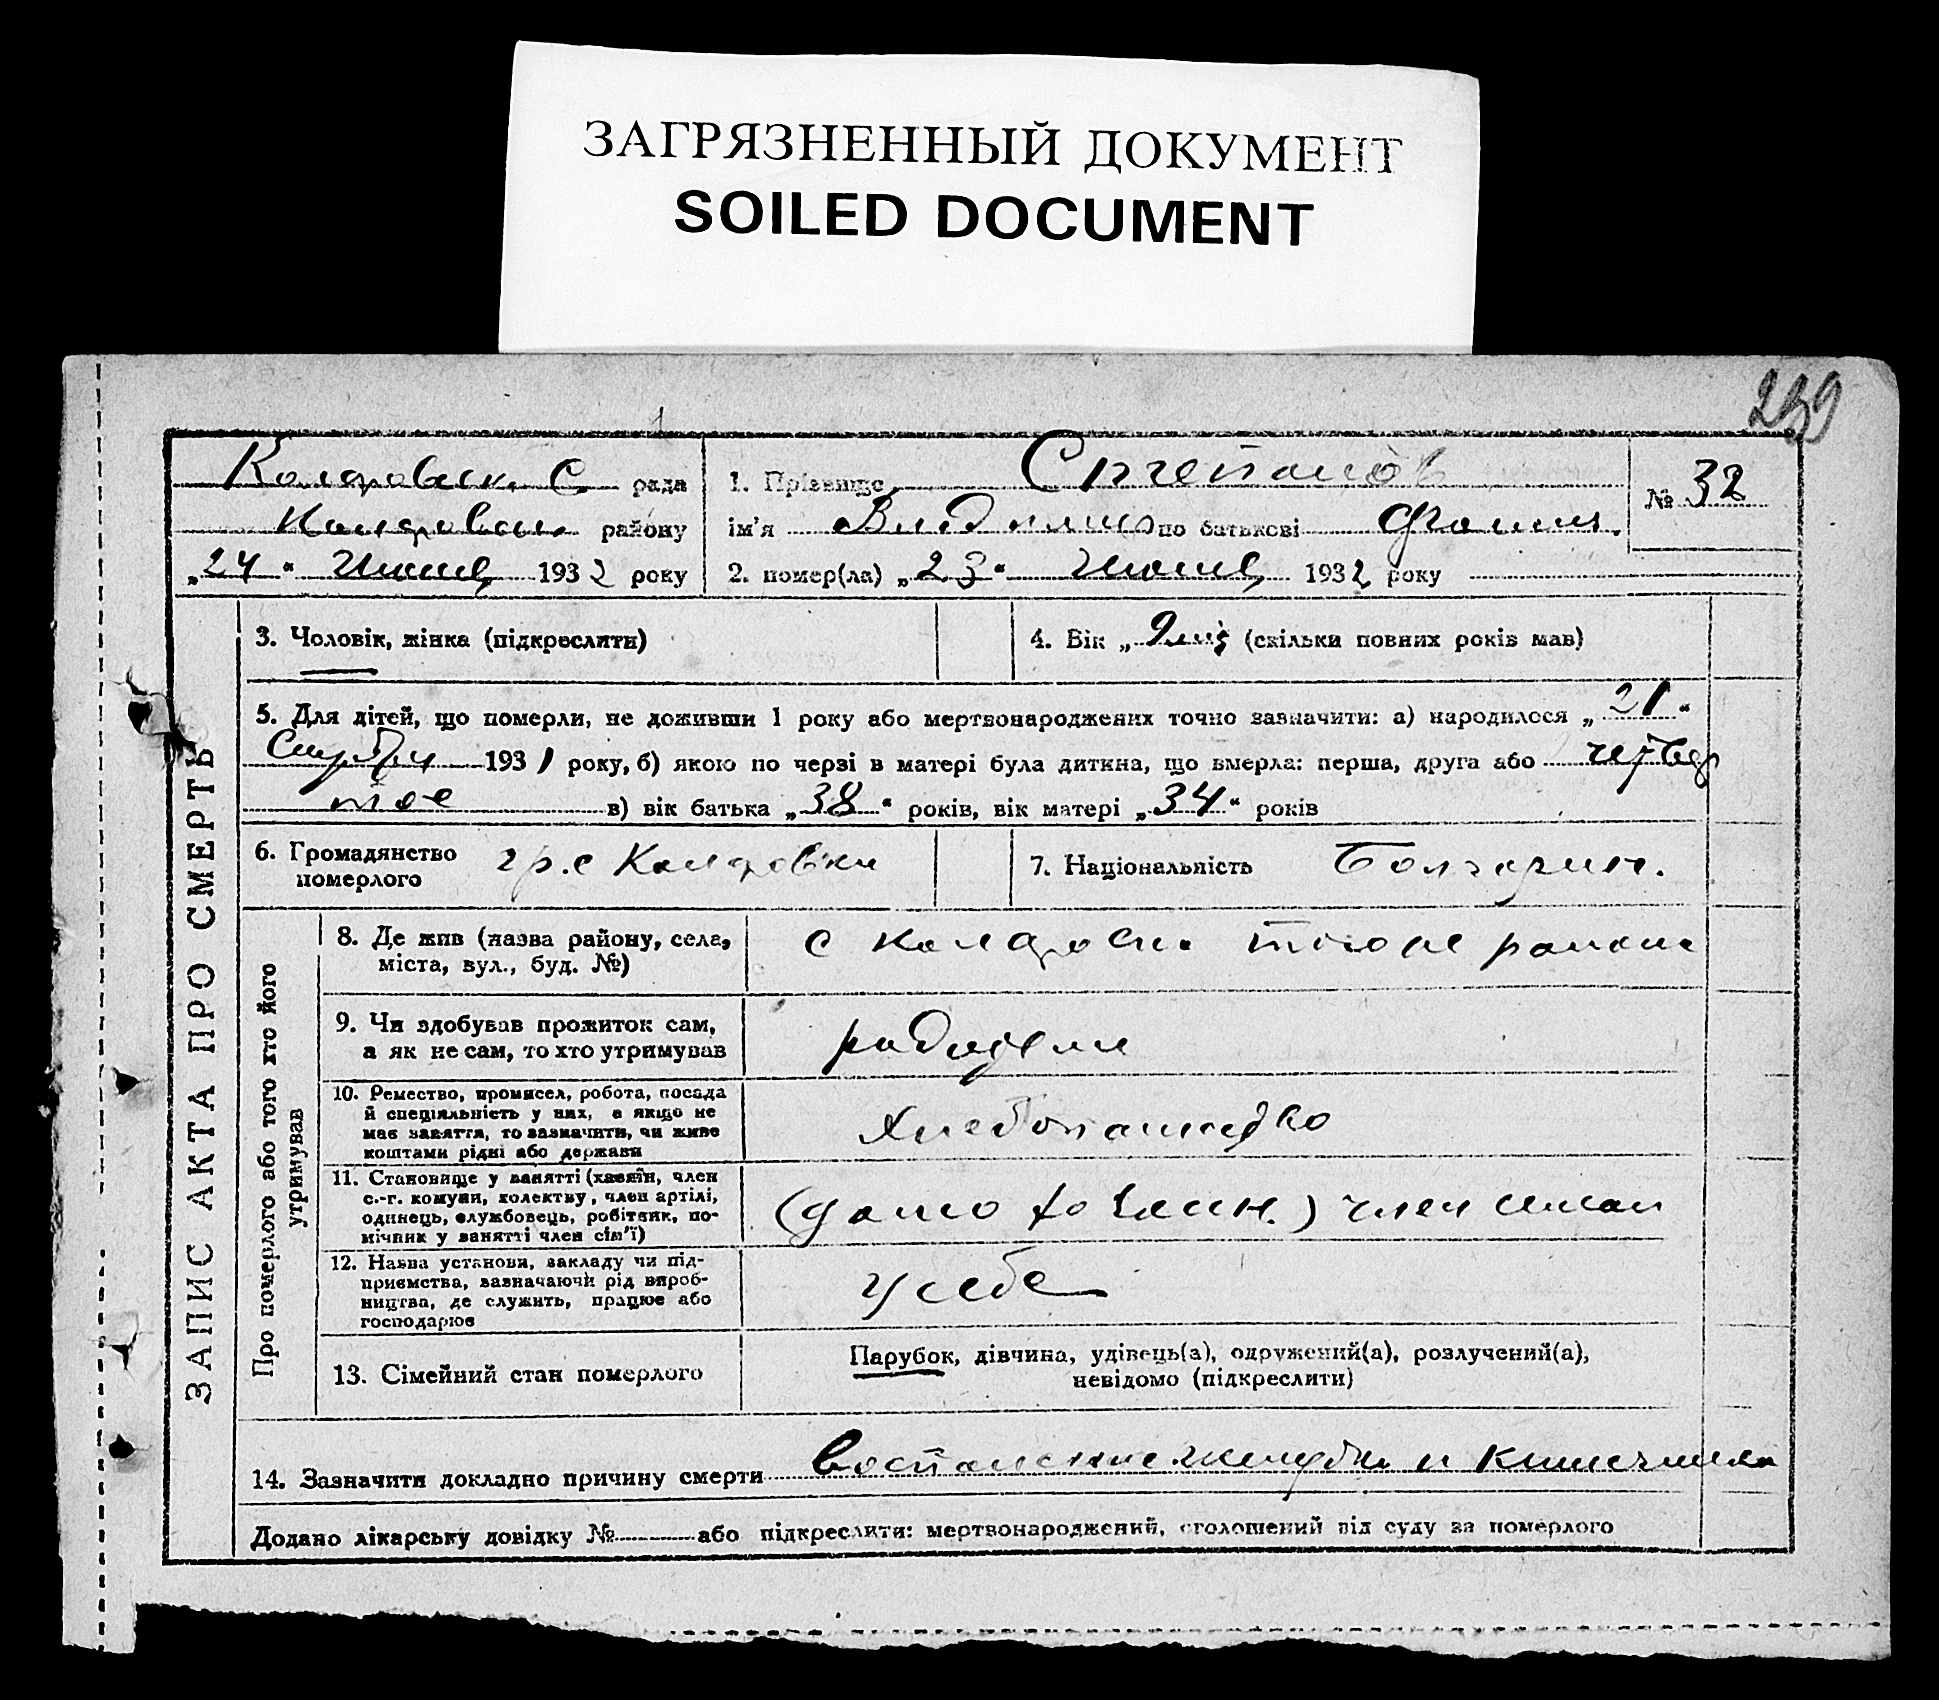 ЗАГРЯЗНЕННЫЙ ДОКУМЕНТ
SOILED DOCUMENT
ЗАПИС АКТА ПРО СМЕРТЬ
С рада
району
„24“ 1932 року
1. Прізвище Степанов
ім'я по батькові
2. помер(ла) „23“ 1932 року
№ 32
3. Чоловік, жінка (підкреслити)
4. Вік „ (скільки повних років мав)
5. Для дітей, що померли, не доживши 1 року або мертвонароджених точно зазначити: а) народилося „21“
1931 року, б) якою по черзі в матері була дитина, що вмерла: перша, друга або четвер
тое в) вік батька „38“ років, вік матері „34“ років
6. Громадянство
померлого гр. с
7. Національність Болгарин.
Про померлого або того хто його
утримував
8. Де жив (назва району, села,
міста, вул., буд. №) с
9. Чи здобував прожиток сам,
а як не сам, то хто утримував
10. Ремество, промисел, робота, посада
й спеціяльність у них, а якщо не
має заняття, то зазначити, чи живе
коштами рідні або держави
11. Становище у занятті (хазяїн, член
с.-г. комуни, колектву, член артілі,
одинець, службовець, робітник, по-
мічник у занятті член сім'ї) член
12. Назва установи, закладу чи під-
приємства, зазначаючи рід вироб-
ництва, де служить, працює або
господарює у себе
13. Сімейний стан померлого
Парубок, дівчина, удівець(а), одружений(а), розлучений(а),
невідомо (підкреслити)
14. Зазначити докладно причину смерти воспаление желудка и кишечника
Додано лікарську довідку № або підкреслити: мертвонароджений, оголошений від суду за померлого